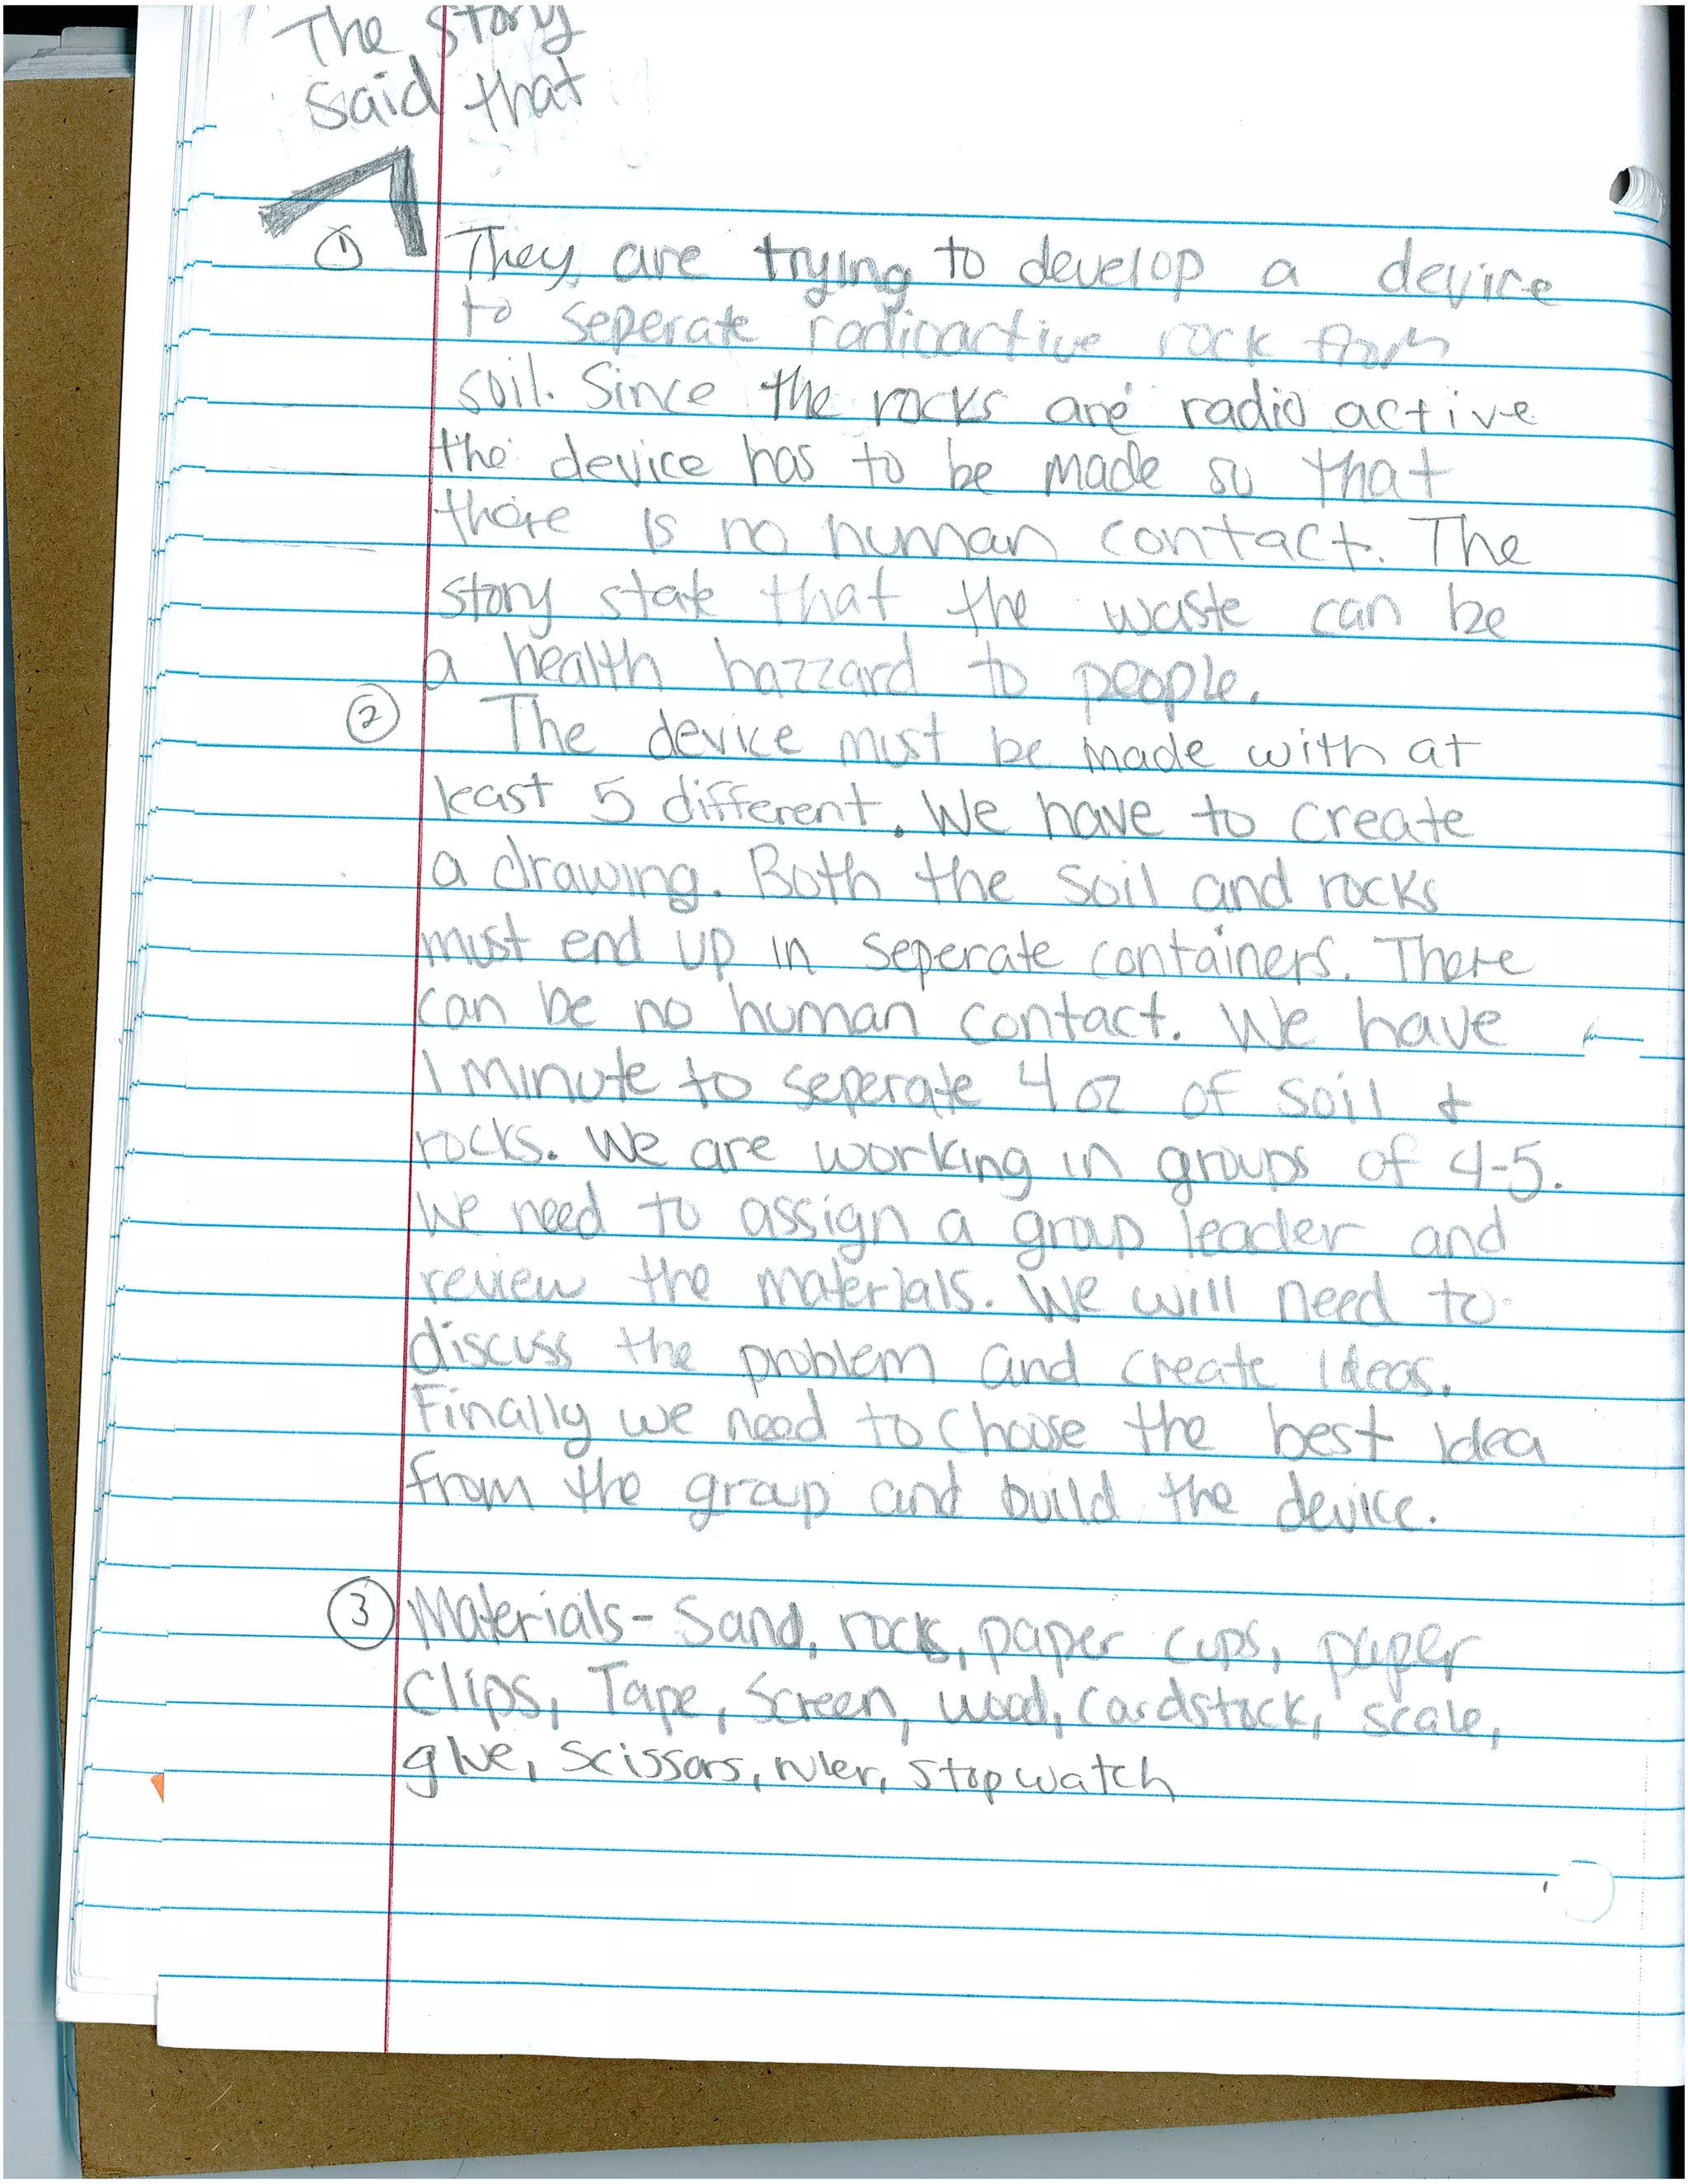 The story
said that
① They are trying to develop a device
to seperate radioactive rock from
soil. Since the rocks are radio active
the device has to be made so that
there is no human contact. The
story state that the waste can be
a health hazzard to people.
② The device must be made with at
least 5 different. We have to create
a drawing. Both the soil and rocks
must end up in seperate containers. There
can be no human contact. We have
1 minute to seperate 4 oz of soil &
rocks. We are working in groups of 4-5.
We need to assign a group leader and
review the materials. We will need to
discuss the problem and create ideas.
Finally we need to choose the best idea
from the group and build the device.
③ Materials- Sand, rocks, paper cups, paper
clips, Tape, Screen, wood, cardstock, scale,
glue, scissors, ruler, stopwatch